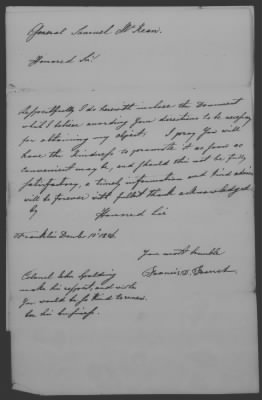 General Samuel McKean.
Honored Sir
Respectfully I do herewith inclose the Document
what I believe according Your directions to be necessary
for obtaining my object. I pray You will
have the kindness to promote it as soon as
convenient may be, and should this not be fully
satisfactory, a timely information and kind advice
will be forever with fullest thank acknowledged
by
Honored Sir
Franklin
Your most humble
Francis D.
Colonel John Spalding
make his respect, and wish
You would be so kind to
on his business.